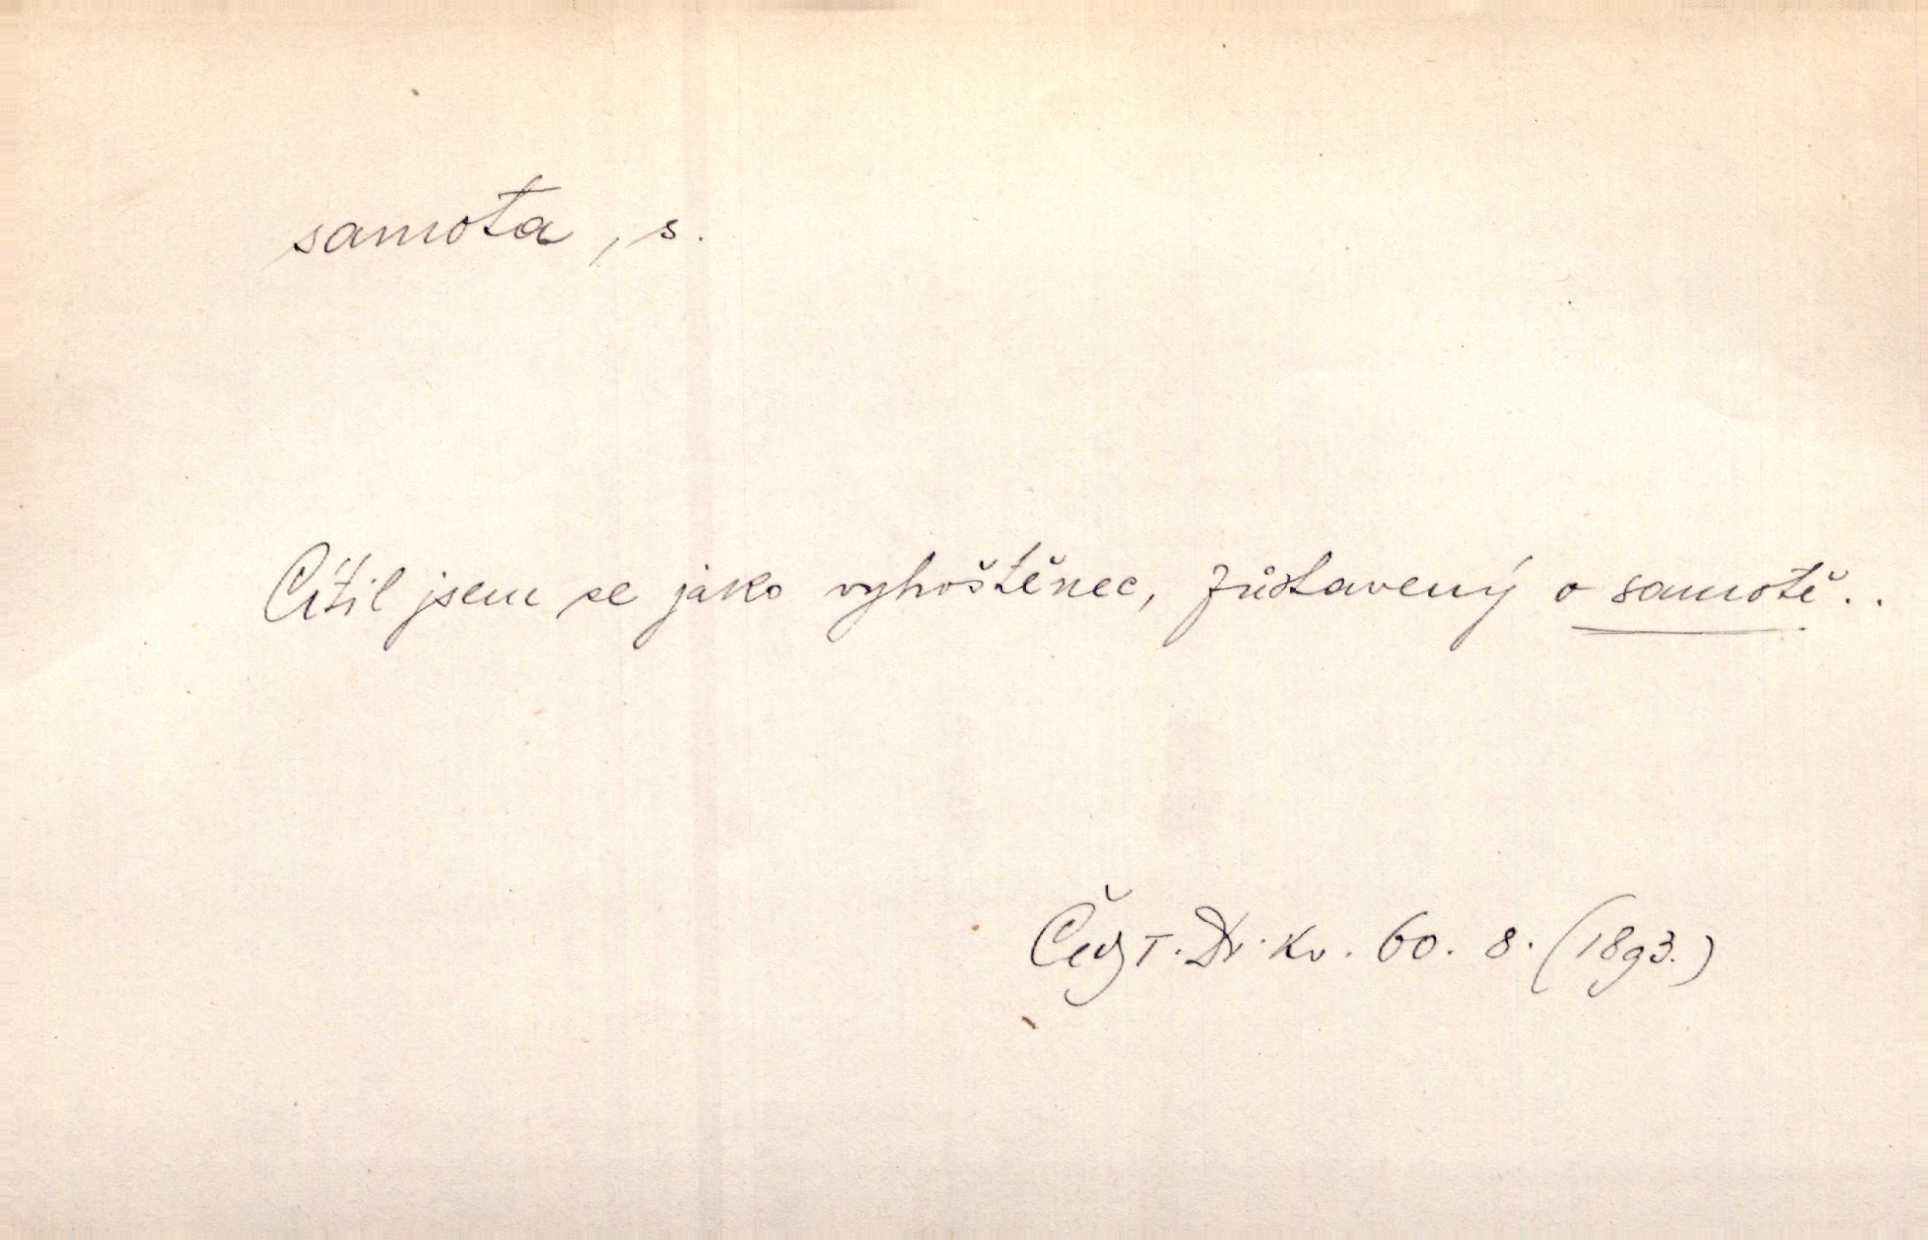 samota, s.
Cítil jsem se jako vyhoštěnec, zůstavený o samotě..
Kv. 60. 8. (1893.)